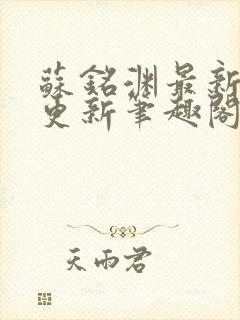 蘇銘淵最新
更新筆趣閣
天雨君